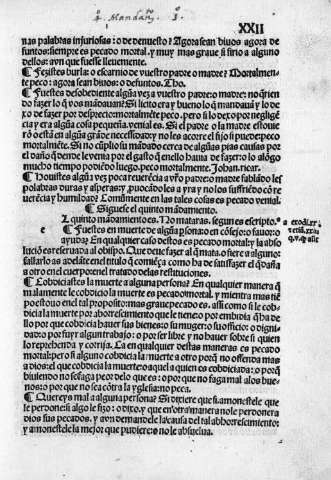 4. Mandañ. 5.
XXII
nas palabras injuriosas: o de denuesto? Agora sean biuos agora de
funtos: siempre es pecado mortal. y muy mas graue si firio a alguno
dellos: avn que fuesse lleuemente.
¶ Fezistes burla: o escarnio de vuestro padre o madre? Mortalmen
te peco: agora sean biuos: o defuntos. Ebo.
¶ Fuestes desobediente algũa vez a vuestro padre: o madre: no queriẽ
do fazer lo q̃ vos mãdauan? Si licito era y bueno lo q̃ mandauã y lo de
xo de fazer por desprecio: mortalmẽte peco. pero si lo dexo por negligẽ
cia y era algũa cosa pequeña. venial es. Si el padre o la madre estouie
rõ o estã en algũa grãde necessidad: y no les acorre el fijo si puede peca
mortalmẽte. Si no cũplio su mãdado cerca de algũas pias causas por
el daño q̃ dende le venia por el gasto q̃ en ello hauia de fazer: o lo alõgo
mucho tiempo podiẽdo luego. peco mortalmente. Johan. nicar.
¶ Houistes algũa vez poca reuerẽcia a vr̃o padre: o madre fablãdo les
palabras duras y asperas: y puocãdo les a yra y no los suffriẽdo cõ re
uerẽcia y humildad? Comũmente en las tales cosas es pecado venial.
¶ Siguese el quinto mãdamiento.
El quinto mãdamiẽto es. No mataras. segun es escripto. a
¶ Fuestes en muerte de algũa psona: o en cõsejo: o fauor: o
ayuda? En qualquier caso destos es pecado mortal: y la abso
lució es reseruada al obispo. Que deue fazer al q̃ mata. o fiere a alguno:
fallarlo as adelãte en el titulo q̃ comiẽça como ha de satisfazer el q̃ daña
a otro en el cuerpo: en el tratado de las restituciones.
¶ Cobdiciastes la muerte a alguna persona? En qualquier manera q̃
malamente le cobdicio la muerte es pecado mortal. y mientra mas tiẽ
po estouo en el tal proposito: mas graue pecado es. assi como si le cob
dicia la muerte por aborrescimiento que le tiene: o por embidia q̃ ha de
llo por que cobdicia hauer sus bienes: o su muger: o su officio: o digni
dad: o por fuyr algun trabajo: o por ser libre y no hauer sobre si quien
lo reprehenda y corrija. La en qualquier destas maneras es pecado
mortal: pero si alguno cobdicia la muerte a otro porq̃ no offenda mas
a dios: el que cobdicia la muerte o aquel a quien es cobdiciada: o porq̃
biuiendo no faga peor de lo que es: o por que no faga mal alos bue
nos: o por que no sea cõtra la yglesia: no peca.
¶ Quereys mal a alguna persona? Si dixere que si. amonestele que
le perdone si algo le fizo: o dixo: y que en otra manera no le perdonera
dios sus pecados. y avn demandele la causa del tal abborrescimiento:
y amonestele lo mejor que pudiere: o no le absuelua.